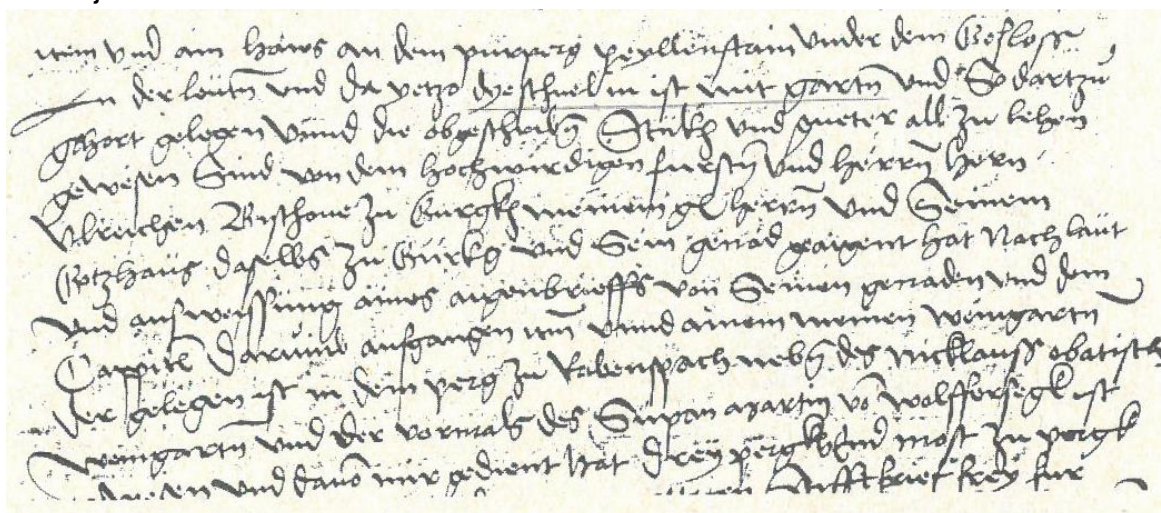 item und ain haws an dem purperg peyllenstain under dem Gesloss
In der leutn und da yetzo dye schuel in ist mit gartn und So dartzu
gehort gelegen vnnd die obgeschribn Stukh und gueter all zu lehen
gewesen Sind von dem hochwirdigen furstn und herrn hern
Ulreichen Bischove zu Gurgkh meinem gl herrn und Seinem
Gotzhaus daselbs zu Gurkg und Sein genad geaigent hat Nach laut
und ausweissung aines aigenbrieffs von Seinen genaden und dem
Cappitl darumb ausgangen itm vnnd ainem meinen weingartn
der gelegen ist in dem perg zu Rabenspach nebn des Nicklauss
weingartn und der vormals des Supan Martin vo wolffersegk ist
und davo mir gedient hat drey pergkh most zu pergk
Stifftbrief frey fur